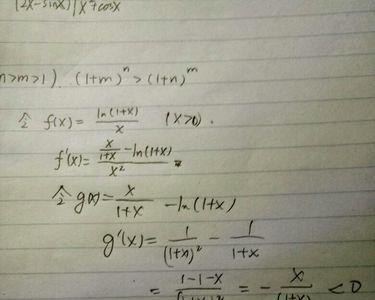 (2x-sinx)|x²+cosx
n>m>1). (1+m)^n > (1+n)^m
令 f(x)= ln(1+x)/x (x>0).
f'(x)= (x/(1+x) - ln(1+x))/x²
令 g(x)= x/(1+x) - ln(1+x)
g'(x)= 1/(1+x)² - 1/(1+x)
= (1-1-x)/(1+x)² = - x/(1+x)² <0